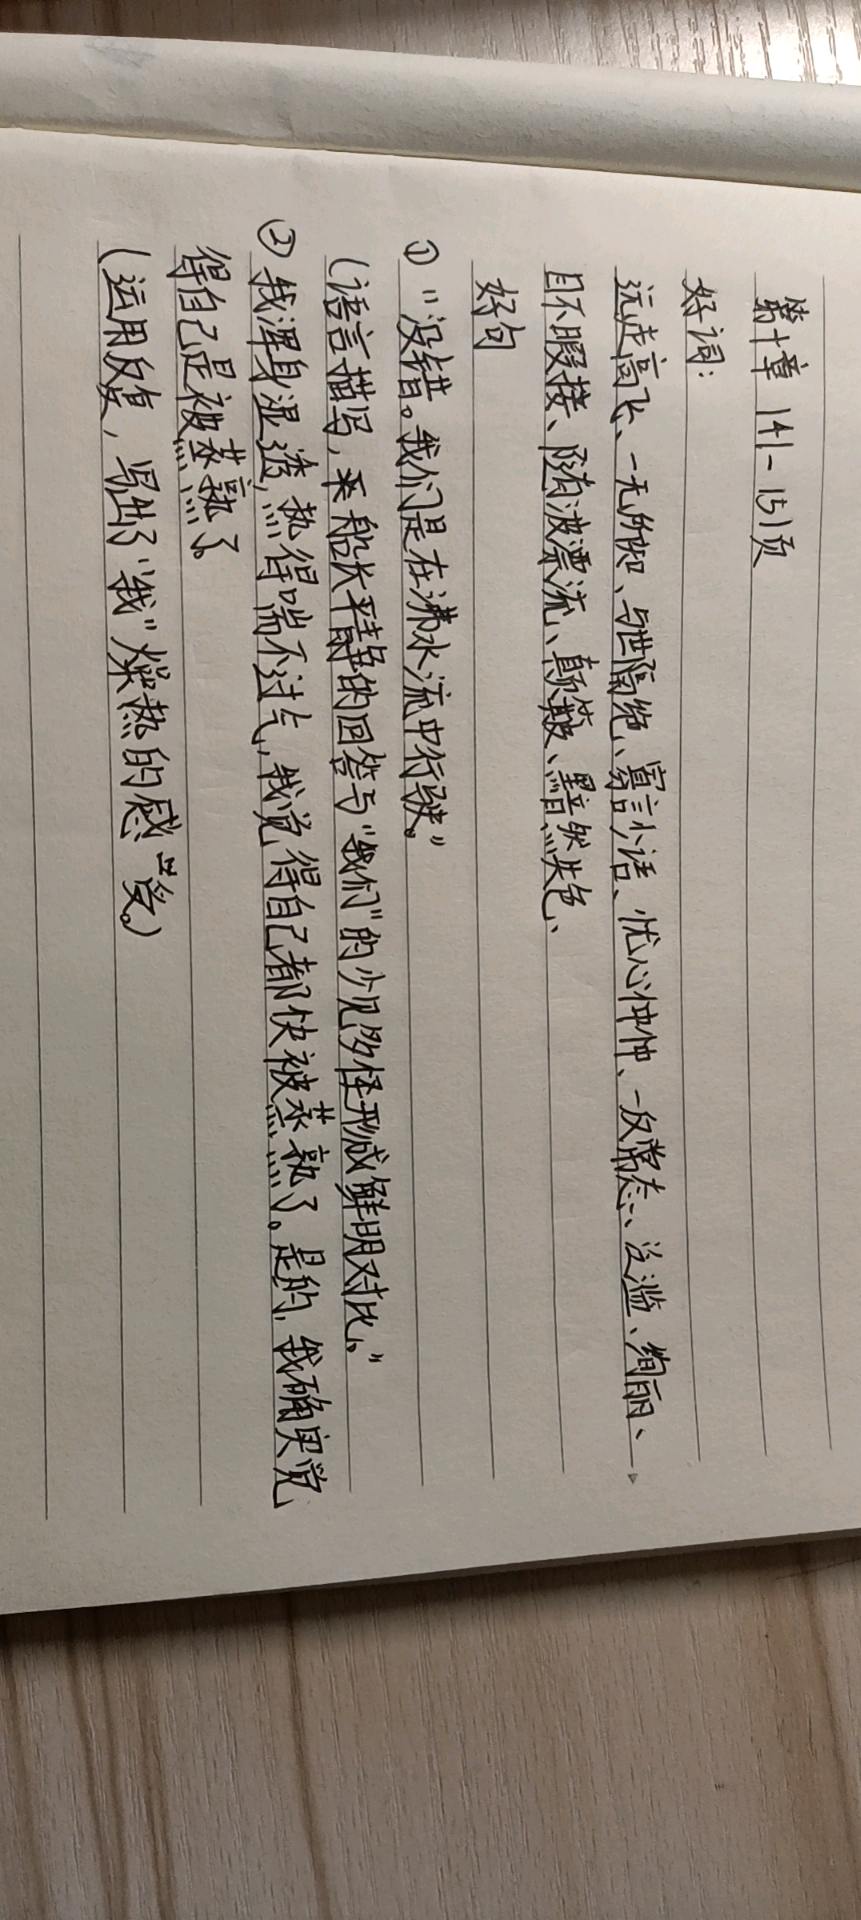 第十章 141-151页
好词:
远走高飞、一无所知、与世隔绝、寡言少语、忧心忡忡、一反常态、泛滥、绚丽、
目不暇接、随波漂流、颠簸、黯然失色、
好句
① “没错。我们是在沸水流中行驶。”
(语言描写,船长平静的回答与“我们”的少见多怪形成鲜明对比。”
② 我浑身湿透,热得喘不过气,我觉得自己都快被蒸熟了。是的,我确实觉
得自己是被蒸熟了。
(运用反复,写出了“我”燥热的感受。)